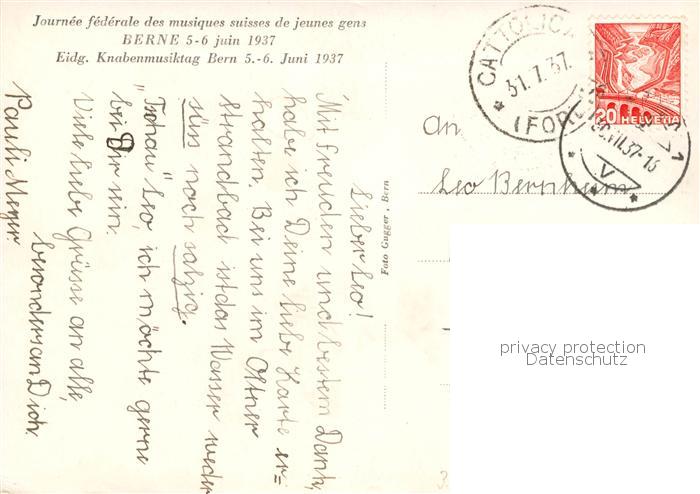 Journée fédérale des musiques suisses de jeunes gens
BERNE 5-6 juin 1937
Eidg. Knabenmusiktag Bern 5.-6. Juni 1937
Lieber Leo!
Mit Freuden und bestem Dank,
habe ich Deine liebe Karte er=
halten. Bei uns im Oltner
Strandbad ist das Wasser weder
süss noch salzig.
"Tschau" Leo, ich möchte gerne
bei Dir sein.
Viele liebe Grüsse an alle,
besonders an Dich.
Pauli Meyer.
Foto Gugger, Bern
CATTOLICA
31.7.37.
(FORLI
VII.37-16
V
20 HELVETIA
An
Leo Bernheim
privacy protection
Datenschutz